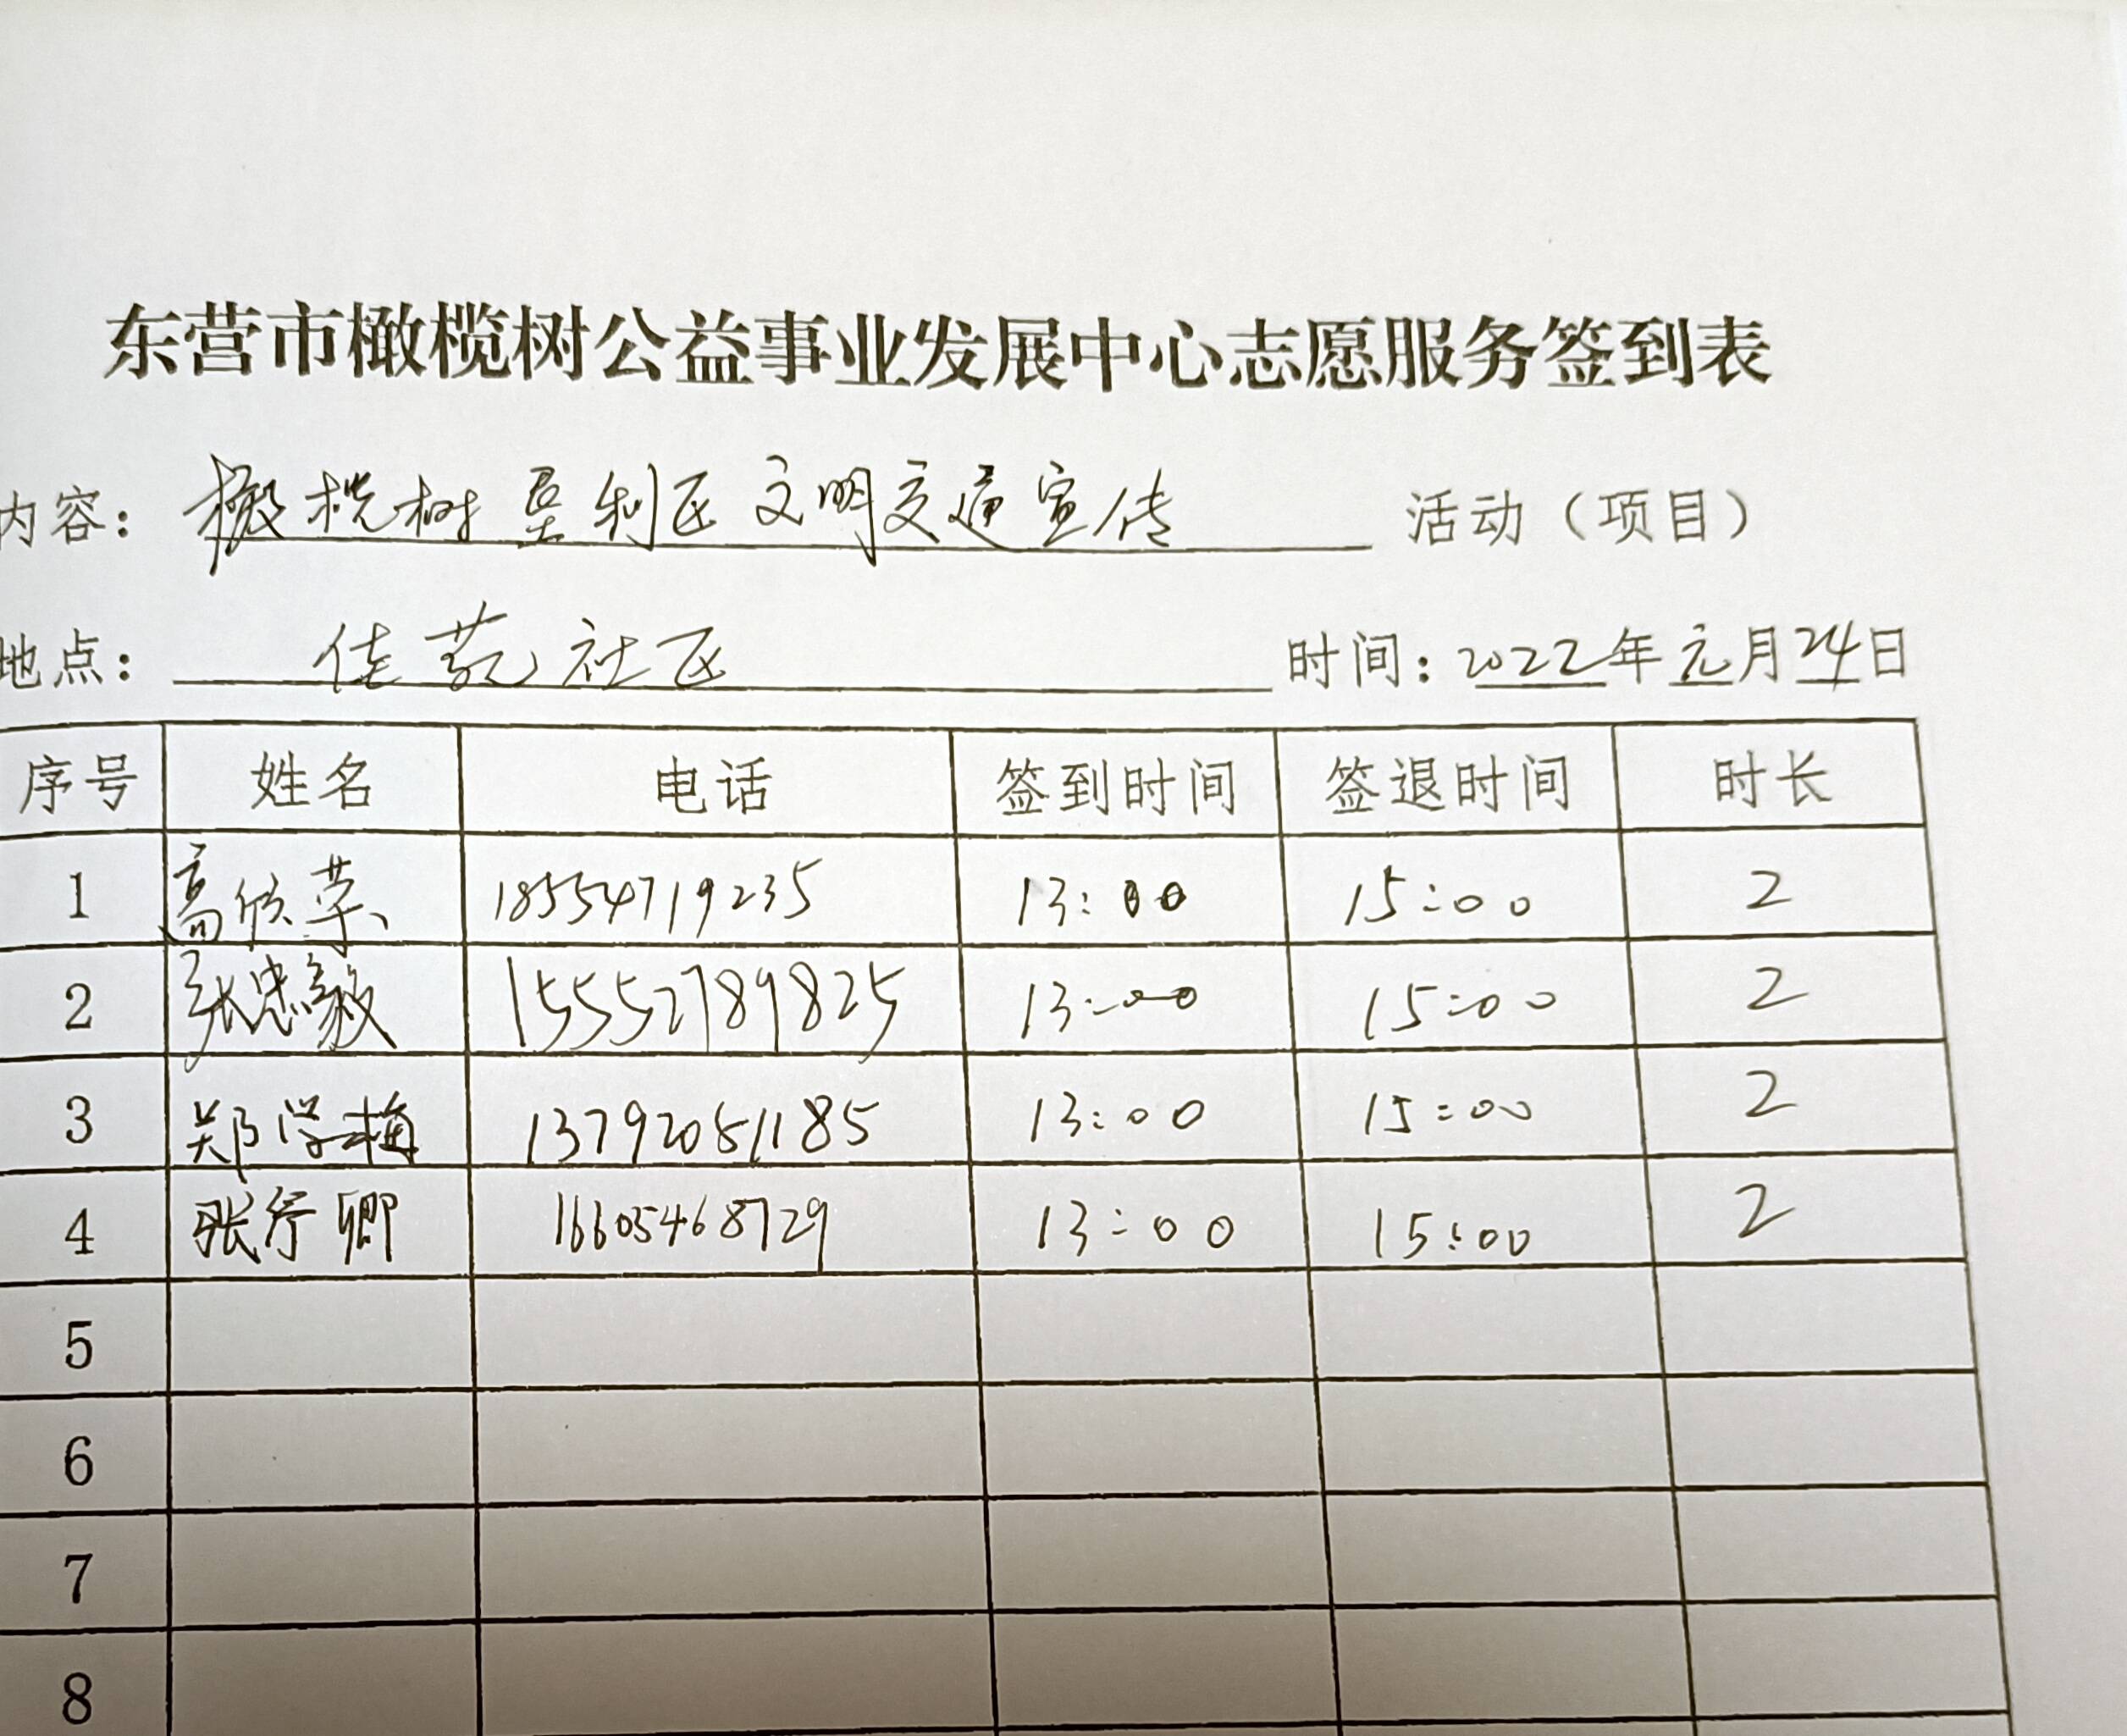 东营市橄榄树公益事业发展中心志愿服务签到表
内容： 橄榄树垦利区文明交通宣传 活动（项目）
地点： 佳苑社区 时间：2022年元月24日
序号 姓名 电话 签到时间 签退时间 时长
1 高欣荣 18554719235 13:00 15:00 2
2 张忠毅 15552789825 13:00 15:00 2
3 郑学梅 13792051185 13:00 15:00 2
4 张序卿 16605468729 13:00 15:00 2
5
6
7
8